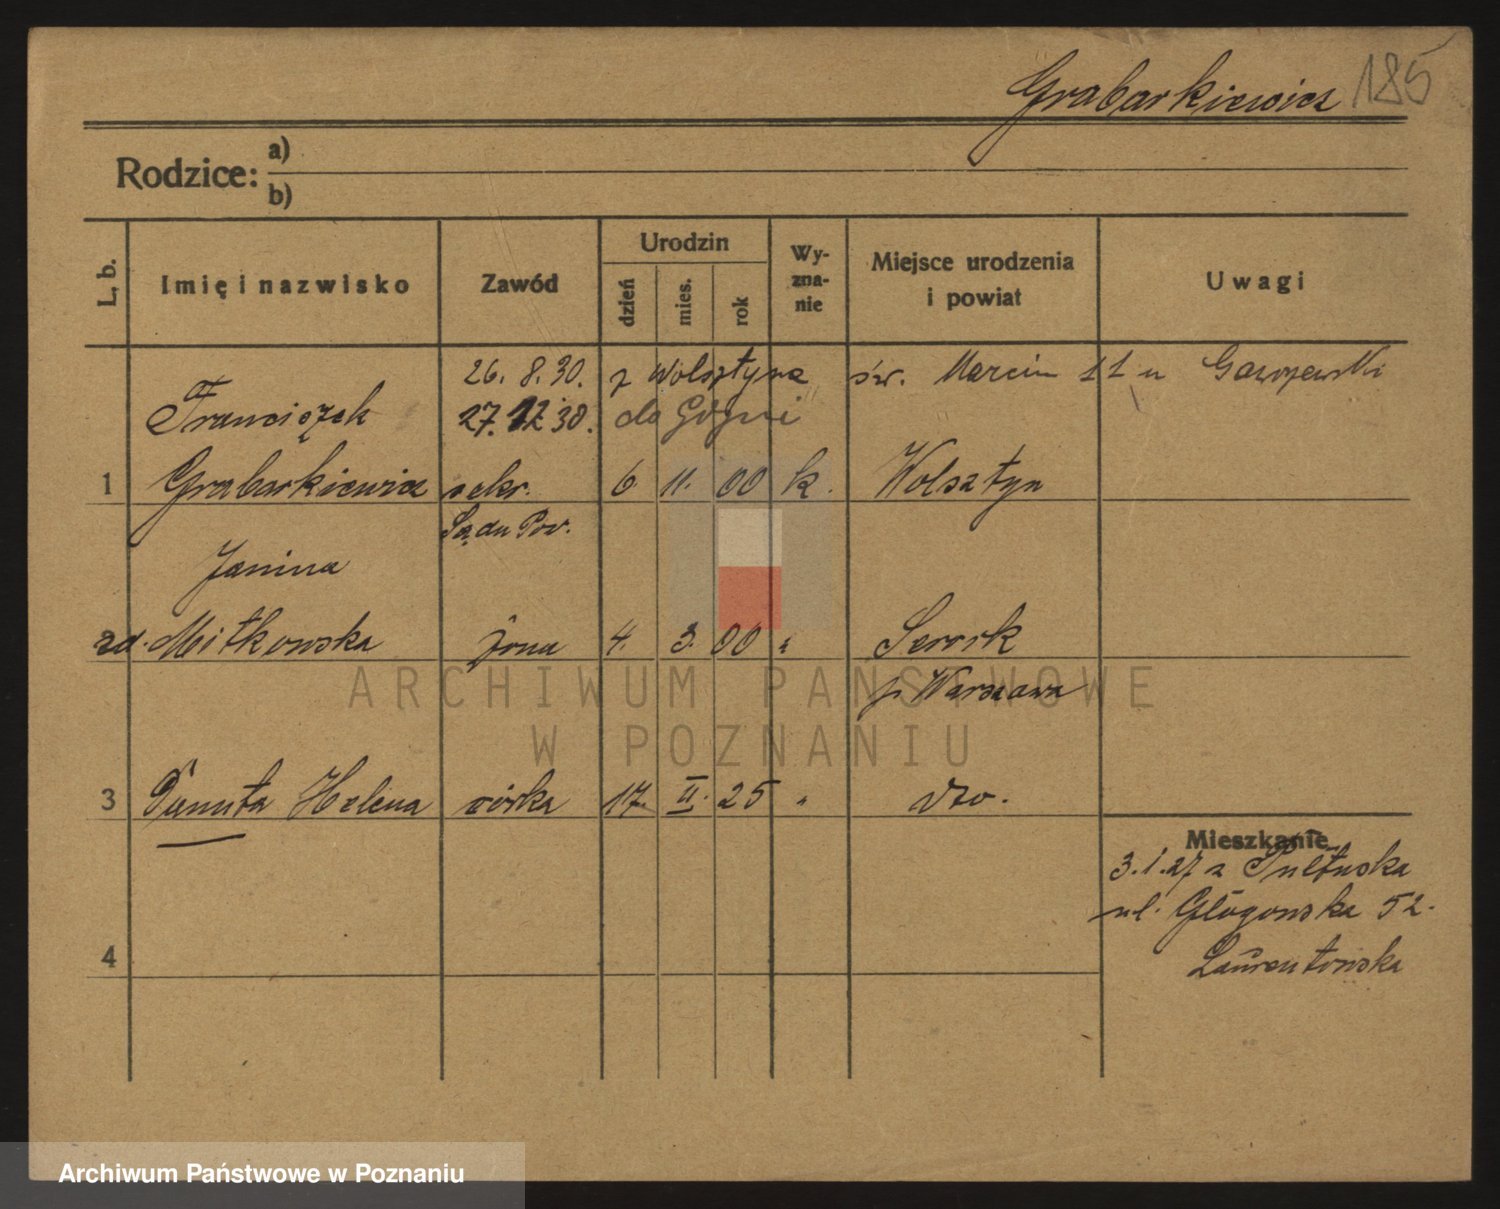 Grabarkiewicz 185
Rodzice: a)
b)
L. b. Imię i nazwisko Zawód Urodzin dzień mies. rok Wy-zna-nie Miejsce urodzenia i powiat Uwagi
26. 8. 30. z Wolsztyna św. Marcin 11 u
Franciszek 27. 12 30. do Gdyni
1 Grabarkiewicz sekr. 6. 11. 00 k. Wolsztyn
Sądu Pow.
Janina
zd. Mitkowska żona 4. 3. 00 " Serock
p. Warszawa
3 Danuta Helena córka 17. II. 25 " dto.
Mieszkanie
3.1.27 z Pułtuska
ul. Głogowska 52.
4
ARCHIWUM PAŃSTWOWE
W POZNANIU
Archiwum Państwowe w Poznaniu